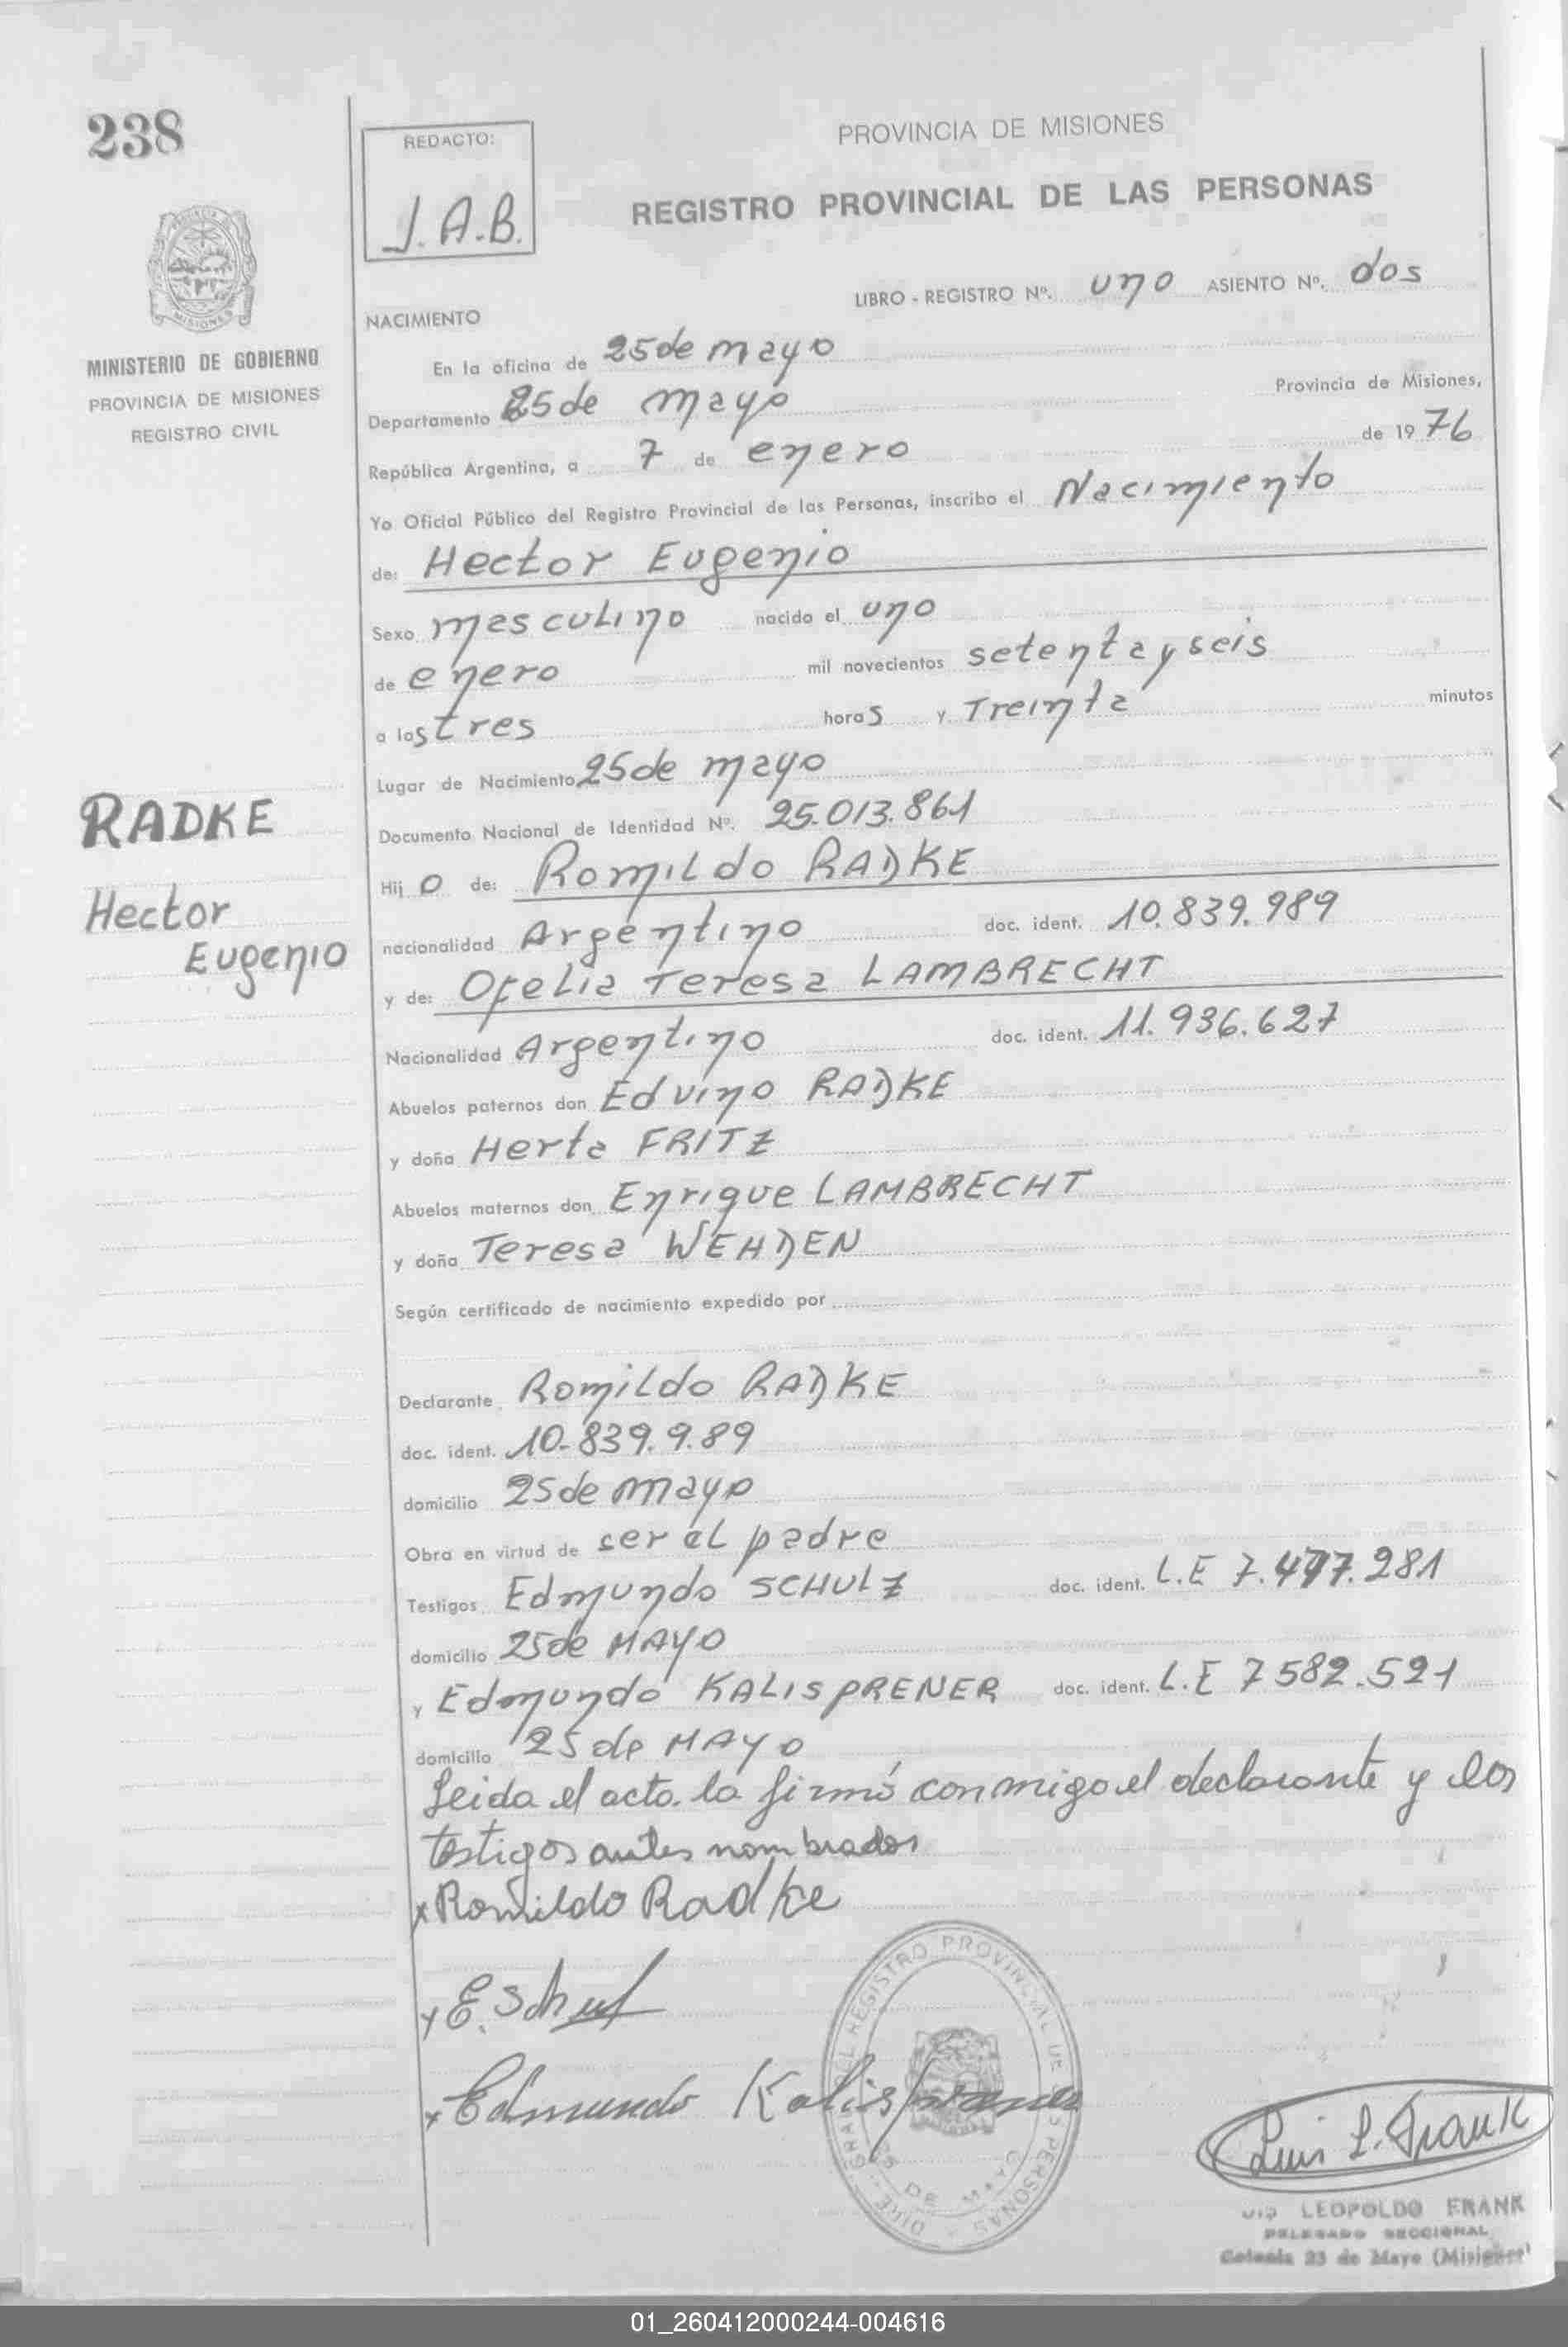 238
REDACTO:
J.A.B.
PROVINCIA DE MISIONES
REGISTRO PROVINCIAL DE LAS PERSONAS
MISIONES
MINISTERIO DE GOBIERNO
PROVINCIA DE MISIONES
REGISTRO CIVIL
LIBRO - REGISTRO Nº. uno ASIENTO Nº. dos
NACIMIENTO
En la oficina de 25 de mayo
Departamento 25 de mayo Provincia de Misiones,
República Argentina, a 7 de enero de 1976
Yo Oficial Público del Registro Provincial de las Personas, inscribo el Nacimiento
de: Hector Eugenio
Sexo masculino nacido el uno
de enero mil novecientos setenta y seis
a las tres horas y Treinta minutos
Lugar de Nacimiento 25 de mayo
Documento Nacional de Identidad Nº. 25.013.861
RADKE
Hector
Eugenio
Hijo de: Romildo RADKE
nacionalidad Argentino doc. ident. 10.839.989
y de: Ofelia Teresa LAMBRECHT
Nacionalidad Argentino doc. ident. 11.936.627
Abuelos paternos don Edvino RADKE
y doña Herta FRITZ
Abuelos maternos don Enrique LAMBRECHT
y doña Teresa WEHDEN
Según certificado de nacimiento expedido por
Declarante Romildo RADKE
doc. ident. 10-839.9.89
domicilio 25 de mayo
Obra en virtud de ser el padre
Testigos Edmundo SCHULZ doc. ident. L.E 7.477.281
domicilio 25 de MAYO
y Edmundo KALISPRENER doc. ident. L.E 7582.521
domicilio 25 de MAYO
Leida el acto. la firmó conmigo el declarante y los
testigos antes nombrados
x Romildo Radke
x E. Schulz
x Edmundo Kalisprener
REGISTRO PROVINCIAL DE LAS PERSONAS
Luis L. Frank
LEOPOLDO FRANK
DELEGADO SECCIONAL
Colonia 25 de Mayo (Misiones)
01_260412000244-004616